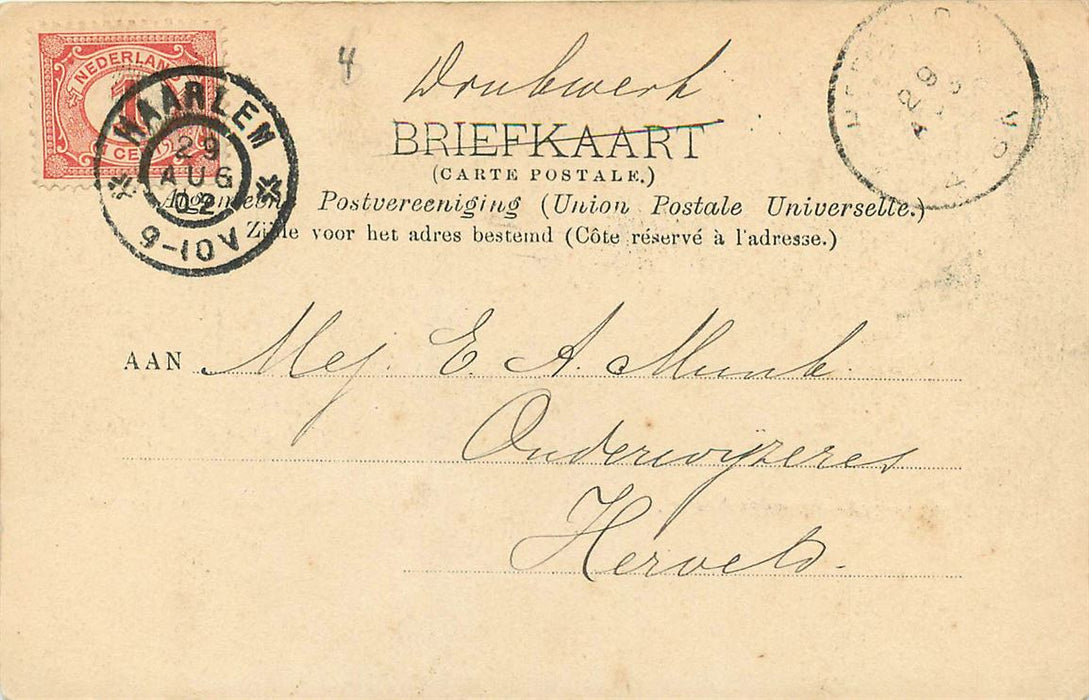 NEDERLAND
1
CENT
HAARLEM
29
AUG
02
9-10V
4
Drukwerk
BRIEFKAART
(CARTE POSTALE.)
Algemeene Postvereeniging (Union Postale Universelle.)
Zijde voor het adres bestemd (Côte réservé à l'adresse.)
29
AAN Mej. E. A. Munk.
Onderwijzeres
Herveld.